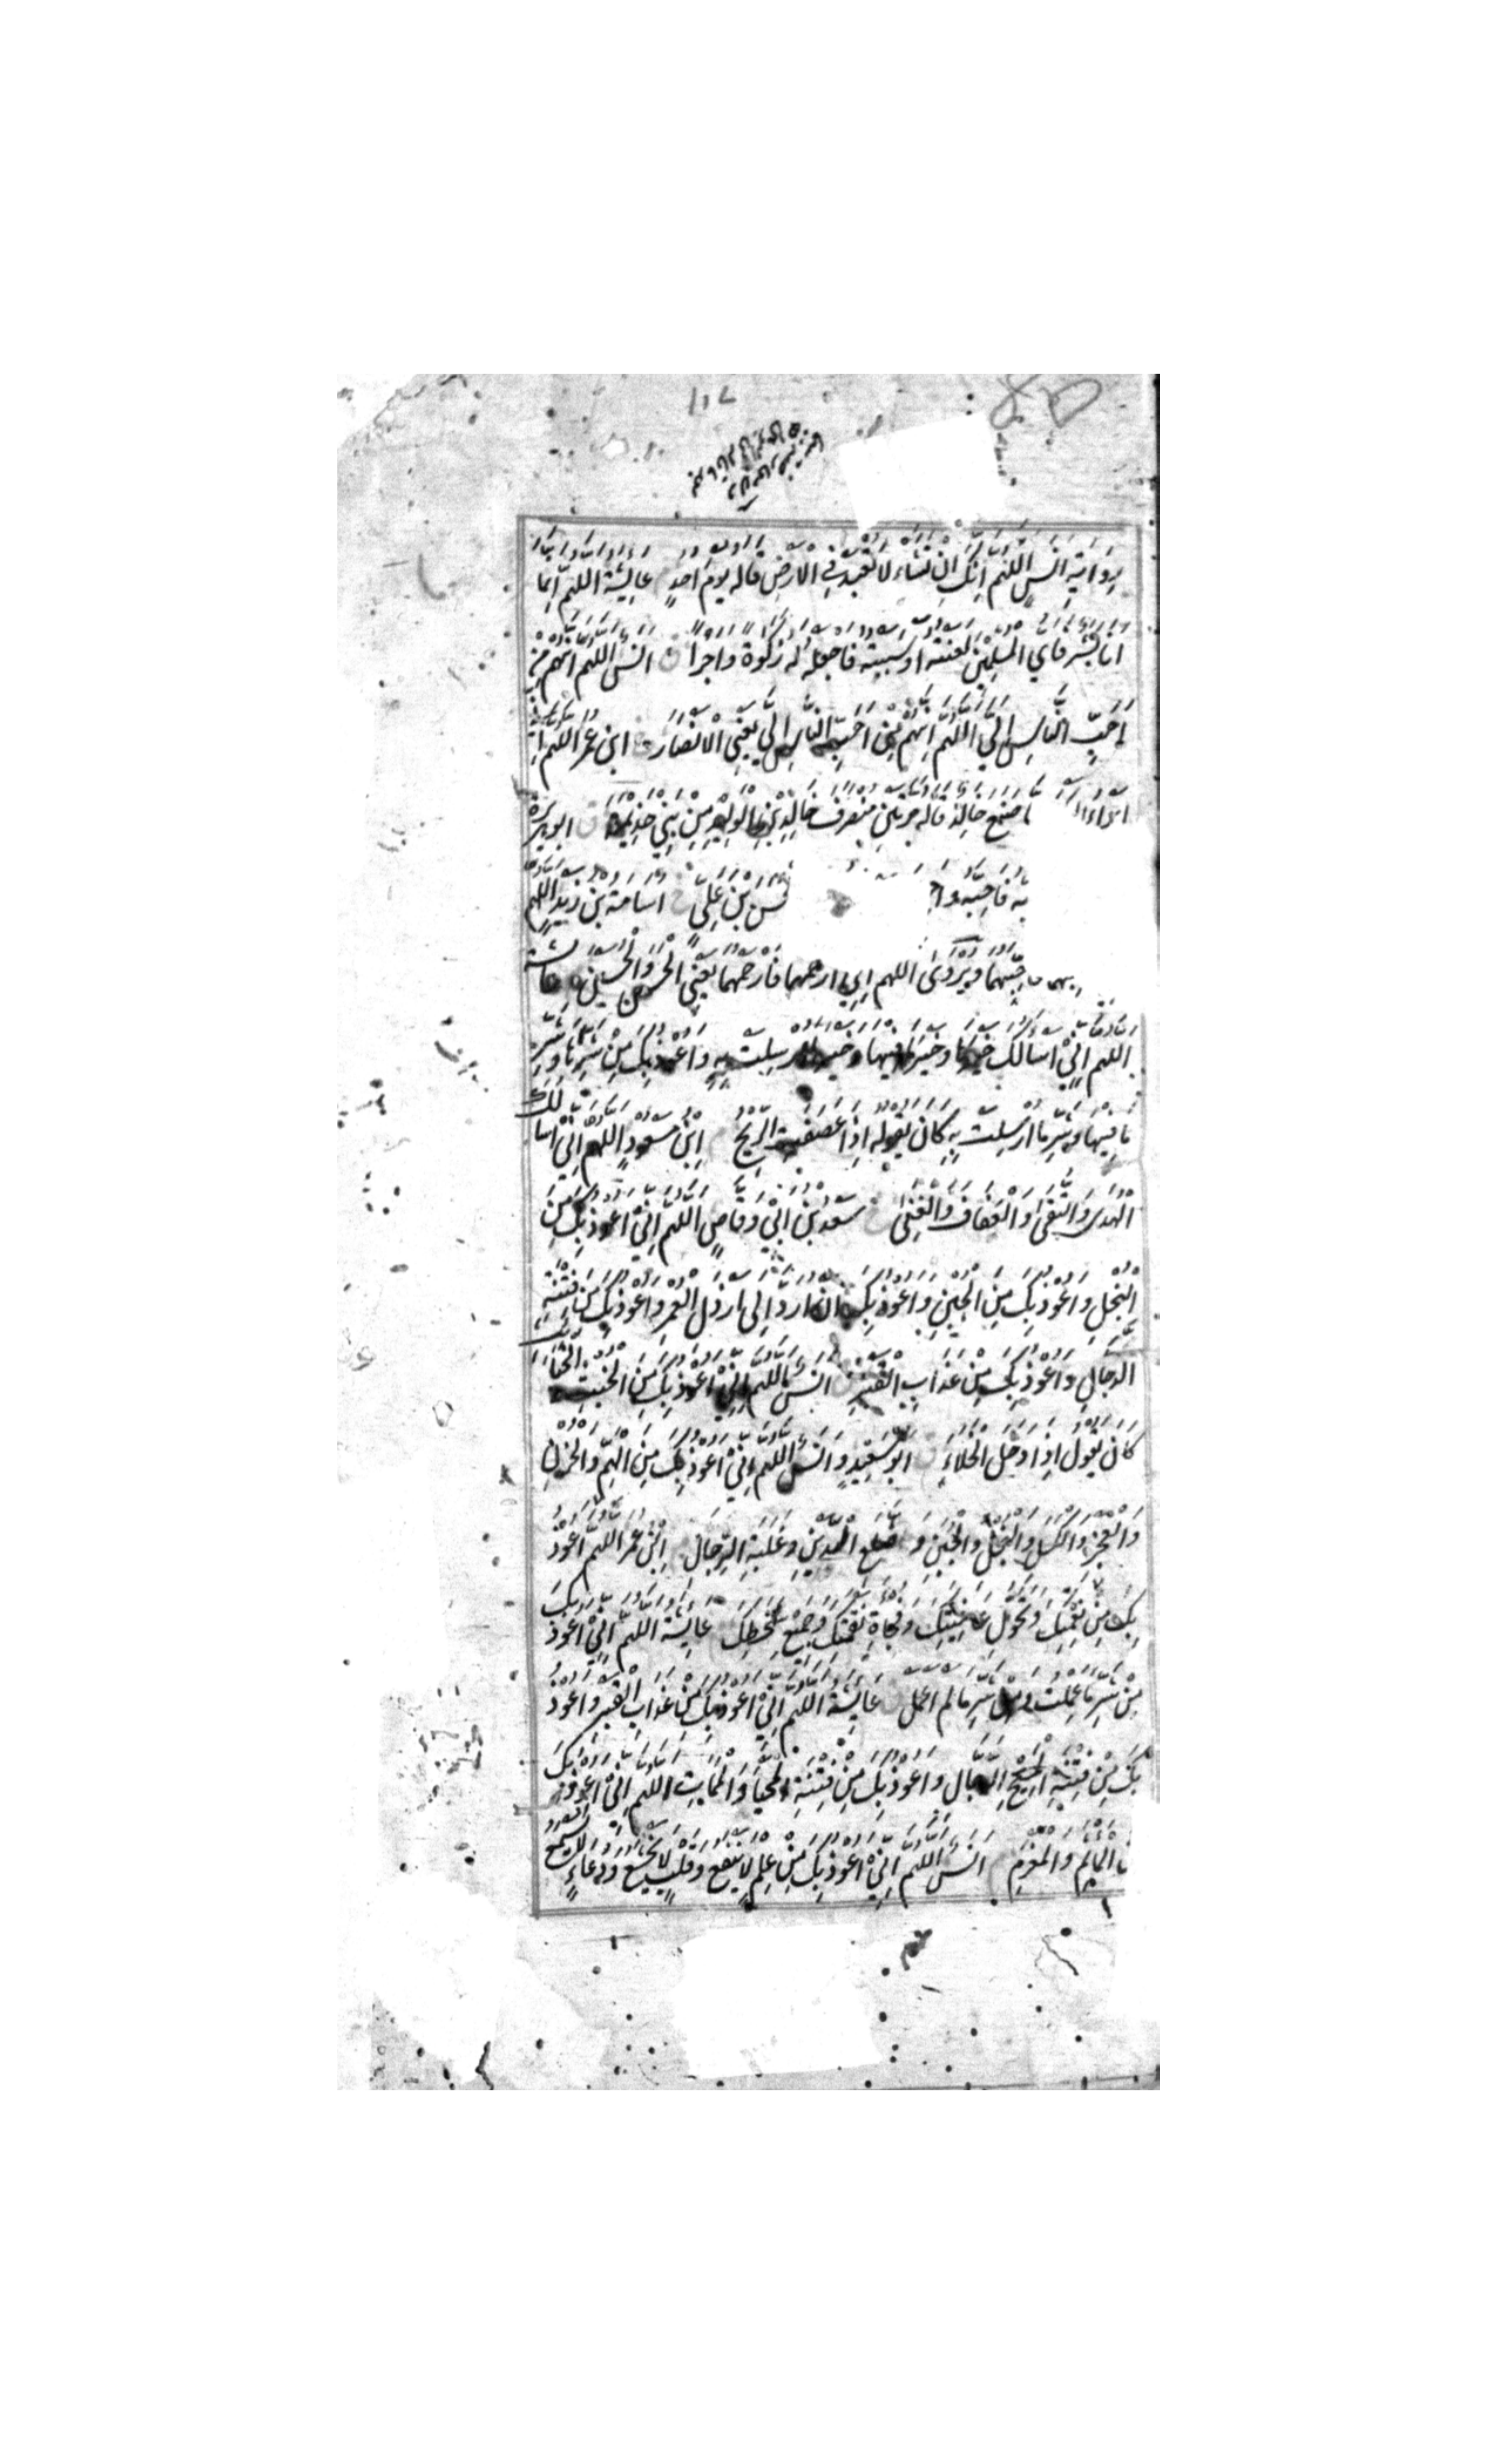 بِرِوَايَةِ اَنَسٍ اَللّٰهُمَّ اِنَّكَ اِنْ تَشَاءْ لَا تُعْبَدْ فِي الْاَرْضِ قَالَهُ يَوْمَ اُحُدٍ عَائِشَةُ اَللّٰهُمَّ اِنَّمَا
اَنَا بَشَرٌ فَاَيُّ الْمُسْلِمِيْنَ لَعَنْتُهُ اَوْ سَبَبْتُهُ فَاجْعَلْهُ لَهُ زَكٰوةً وَاَجْرًا ق اَنَسٌ اَللّٰهُمَّ اَنْتُمْ مِنْ
اَحَبِّ النَّاسِ اِلَيَّ اَللّٰهُمَّ اَنْتُمْ مِنْ اَحَبِّ النَّاسِ اِلَيَّ يَعْنِي الْاَنْصَارَ ابْنُ عُمَرَ اَللّٰهُمَّ اِنِّي
اَبْرَاُ صَنَعَ خَالِدٌ قَالَهُ مَرَّتَيْنِ مُنْصَرَفَ خَالِدِ بْنِ الْوَلِيْدِ مِنْ بَنِي جَذِيْمَةَ ق ابو هريرة
به فَاَحِبَّهُ وَا سن بْنَ عَلِيٍّ خ اُسَامَةُ بْنُ زَيْدٍ اَللّٰهُمَّ
حِبَّهُمَا وَيُرْوٰى اَللّٰهُمَّ اِنِّي اَرْحَمُهُمَا فَارْحَمْهُمَا يَعْنِي الْحَسَنَ وَالْحُسَيْنَ عَائِشَة
اَللّٰهُمَّ اِنِّيْ اَسْاَلُكَ خَيْرَهَا وَخَيْرَ مَا فِيْهَا وَخَيْرَ مَا اُرْسِلَتْ بِهِ وَاَعُوْذُ بِكَ مِنْ شَرِّهَا وَشَرِّ
مَا فِيْهَا وَشَرِّ مَا اُرْسِلَتْ بِهِ كَانَ يَقُوْلُهُ اِذَا عَصَفَتِ الرِّيْحُ ابْنُ مَسْعُوْدٍ اَللّٰهُمَّ اِنِّيْ اَسْاَلُكَ
الْهُدٰى وَالتُّقٰى وَالْعَفَافَ وَالْغِنٰى خ سَعْدُ بْنُ اَبِيْ وَقَّاصٍ اَللّٰهُمَّ اِنِّيْ اَعُوْذُ بِكَ مِنَ
الْبُخْلِ وَاَعُوْذُ بِكَ مِنَ الْجُبْنِ وَاَعُوْذُ بِكَ اَنْ اُرَدَّ اِلٰى اَرْذَلِ الْعُمُرِ وَاَعُوْذُ بِكَ مِنْ فِتْنَةِ
الدَّجَّالِ وَاَعُوْذُ بِكَ مِنْ عَذَابِ الْقَبْرِ ق اَنَسٌ اَللّٰهُمَّ اِنِّيْ اَعُوْذُ بِكَ مِنَ الْخُبُثِ وَالْخَبَائِثِ
كَانَ يَقُوْلُ اِذَا دَخَلَ الْخَلَاءَ ق اَبُوْ سَعِيْدٍ وَاَنَسٌ اَللّٰهُمَّ اِنِّيْ اَعُوْذُ بِكَ مِنَ الْهَمِّ وَالْحَزَنِ
وَالْعَجْزِ وَالْكَسَلِ وَالْبُخْلِ وَالْجُبْنِ وَ ضَلَعِ الدَّيْنِ وَغَلَبَةِ الرِّجَالِ ابْنُ عُمَرَ اَللّٰهُمَّ اَعُوْذُ
بِكَ مِنْ نِعْمَتِكَ وَتَحَوُّلِ عَافِيَتِكَ وَفُجَاءَةِ نِقْمَتِكَ وَجَمِيْعِ سَخَطِكَ عَائِشَةُ اَللّٰهُمَّ اِنِّيْ اَعُوْذُ بِكَ
مِنْ شَرِّ مَا عَمِلْتُ وَمِنْ شَرِّ مَا لَمْ اَعْمَلْ ق عَائِشَةُ اَللّٰهُمَّ اِنِّيْ اَعُوْذُ بِكَ مِنْ عَذَابِ الْقَبْرِ وَاَعُوْذُ
بِكَ مِنْ فِتْنَةِ الْمَسِيْحِ الدَّجَّالِ وَاَعُوْذُ بِكَ مِنْ فِتْنَةِ الْمَحْيَا وَالْمَمَاتِ اَللّٰهُمَّ اِنِّيْ اَعُوْذُ بِكَ
الْمَاْثَمِ وَالْمَغْرَمِ اَنَسٌ اَللّٰهُمَّ اِنِّيْ اَعُوْذُ بِكَ مِنْ عِلْمٍ لَا يَنْفَعُ وَقَلْبٍ لَا يَخْشَعُ وَدُعَاءٍ لَا يُسْمَعُ